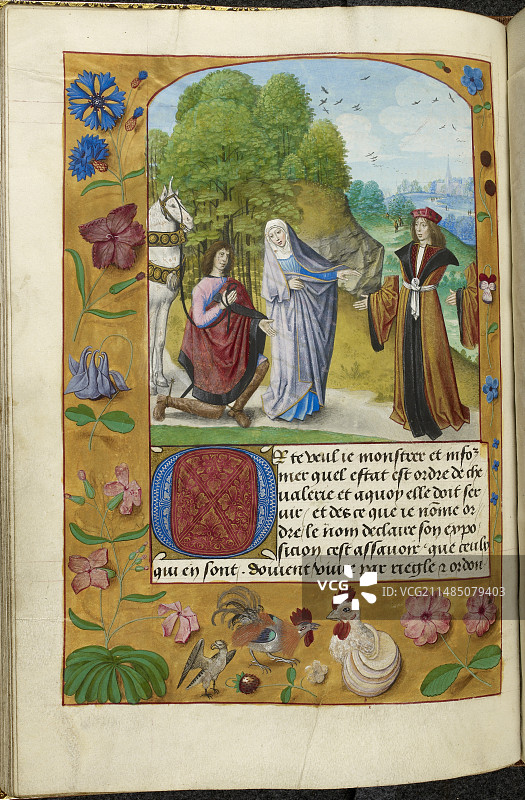 Or te veul ie monstrer et infor
mer quel estat est ordre de che
ualerie et a quoy elle doit ser
uir / et des ce que ie nōme or
dre / le nom declaire son expo
sicion cest assauoir que ceulx
qui en sont . doiuent viure par riegle & ordon
VCG
VCG
ID: VCG211485079403